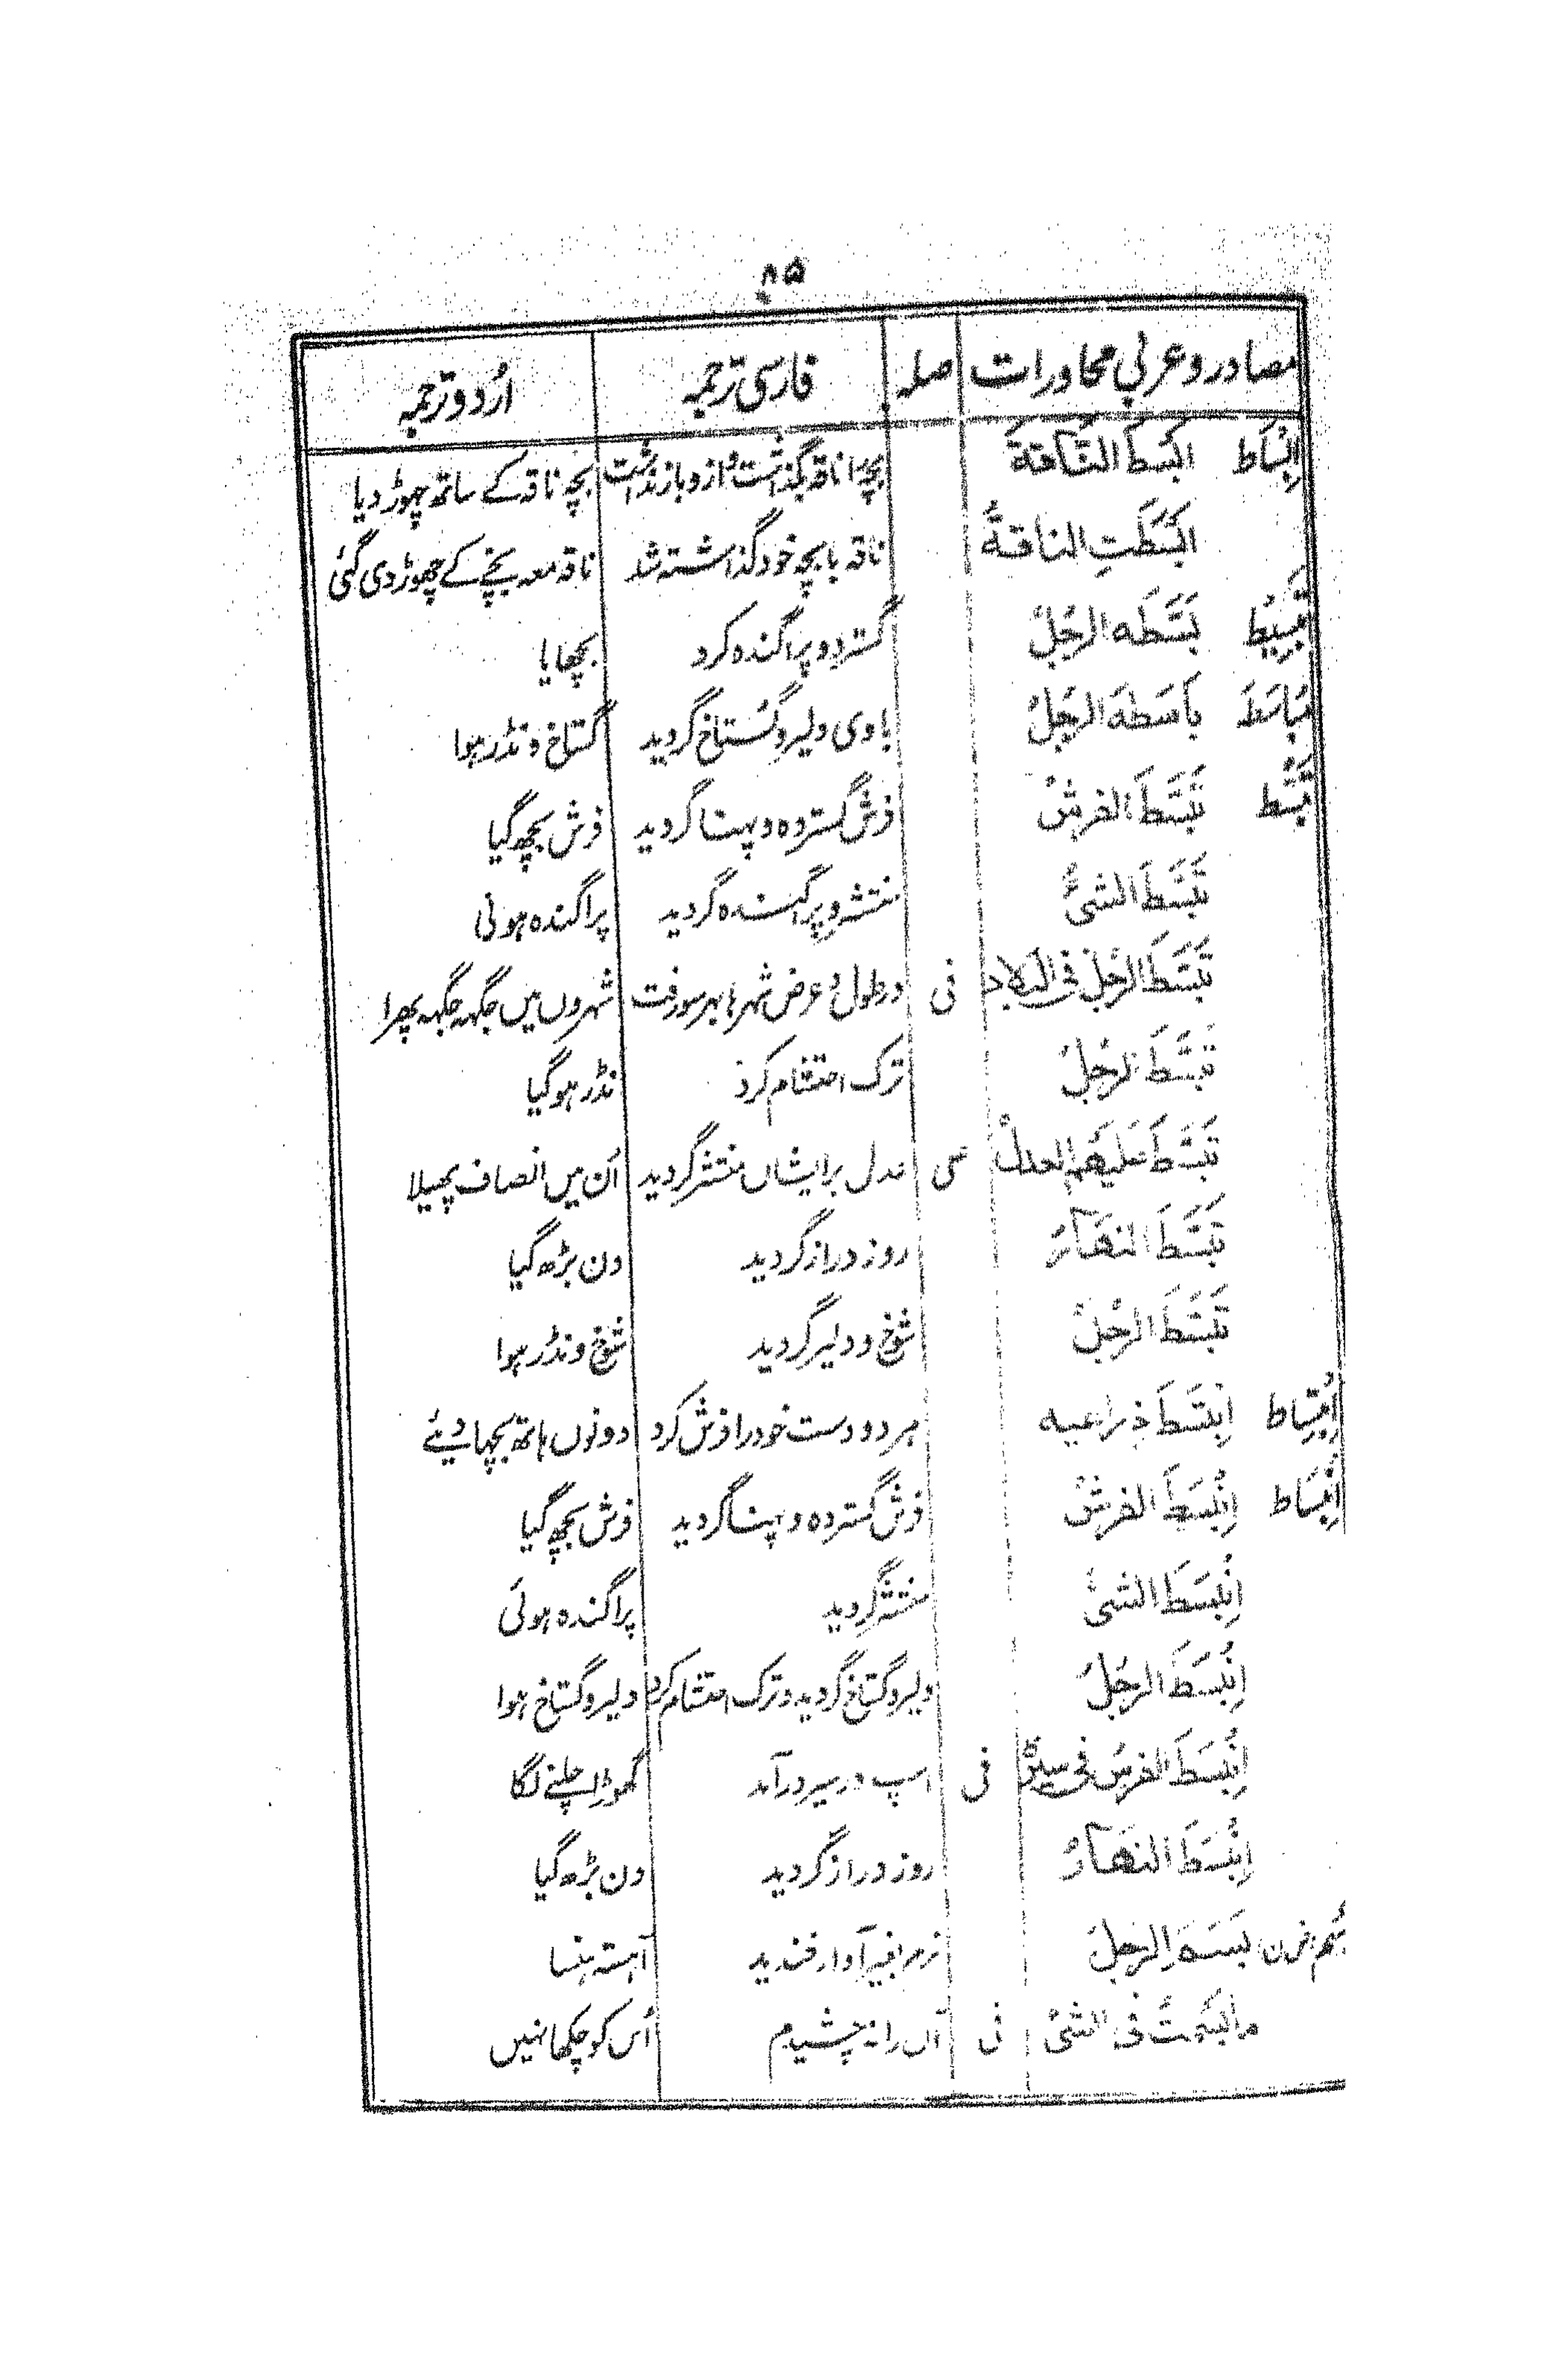 ۸۵
مصادر و عربی محاورات صلہ فارسی ترجمہ اُردو ترجمہ
اِبْسَاط اَبْسَطَ النَّاقةَ بچہ را ناقہ بگذاشت و ازو باز نداشت بچہ ناقہ کے ساتھ چھوڑ دیا
اَبْسَطَتِ الناقةُ ناقہ با بچہ خود گذاشتہ شد ناقہ معہ بچے کے چھوڑ دی گئی
تَبْسِیْط بَسَّطَہ الرجُلُ گسترد و پراگندہ کرد بچھایا
مُبَاسَطَ بَاسَطَهَ الرجُلُ باوی دلیر و گستاخ گردید گستاخ و نڈر ہوا
تَبَسُّط تَبَسَّطَ الفرشُ فرش گستردہ و پہنا گردید فرش بچھ گیا
تَبَسَّطَ الشئُ منتشر و پراگندہ گردید پراگندہ ہوئی
تَبَسَّطَ الرجُلُ فی البَلاد فی در طول و عرض شہرہا بہر سو رفت شہروں میں جگہہ جگہہ پھرا
تَبَسَّطَ الرجُلُ ترک احتشام کرد نڈر ہو گیا
تَبَسَّطَ عَلَیْهِم العدلُ علی عدل بر ایشاں منتشر گردید اُن میں انصاف پھیلا
تَبَسَّطَ النهَارُ روز دراز گردید دن بڑھ گیا
تَبَسَّطَ الرجُلُ شوخ و دلیر گردید شوخ و نڈر ہوا
اِبْتِسَاط اِبْتَسَطَ ذراعیہ ہر دو دست خود را فرش کرد دونوں ہاتھ بچھا دیئے
اِنْبِسَاط اِنْبَسَطَ الفرشُ فرش گستردہ و پہنا گردید فرش بچھ گیا
اِنْبَسَطَ الشئُ منتشر گردید پراگندہ ہوئی
اِنْبَسَطَ الرجُلُ دلیر و گستاخ گردید و ترک احتشام کرد دلیر و گستاخ ہوا
اِنْبَسَطَ الفرسُ فی سیرہ فی اسپ در سیر در آمد گھوڑا چلنے لگا
اِنْبَسَطَ النهَارُ روز دراز گردید دن بڑھ گیا
بَسَمَ الرجلُ بغیر آواز خندید آہستہ ہنسا
ما بَسَمتُ فی الشئ فی آں را نہ چشیدم اُس کو چکھا نہیں